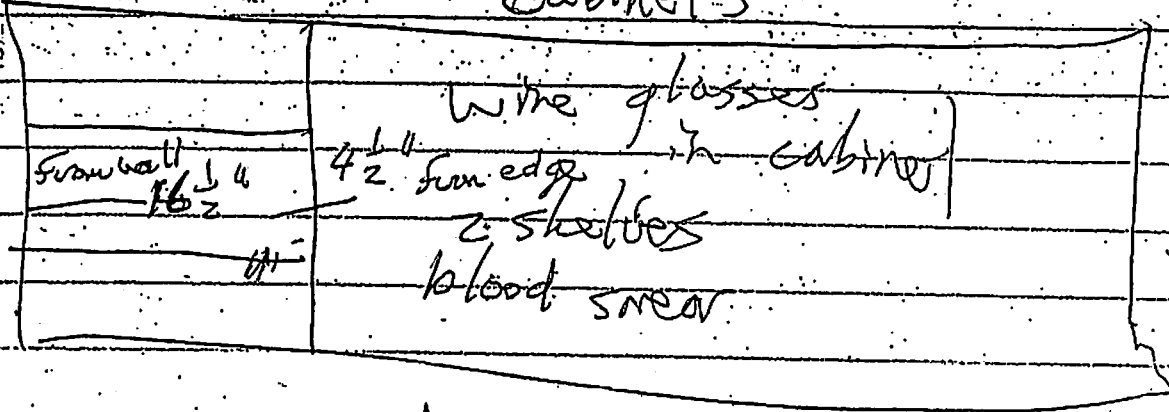 Cabinets
wine glasses
in cabinet
from wall
16 1/2 "
4 1/2 " from edge
2 shelves
blood smear